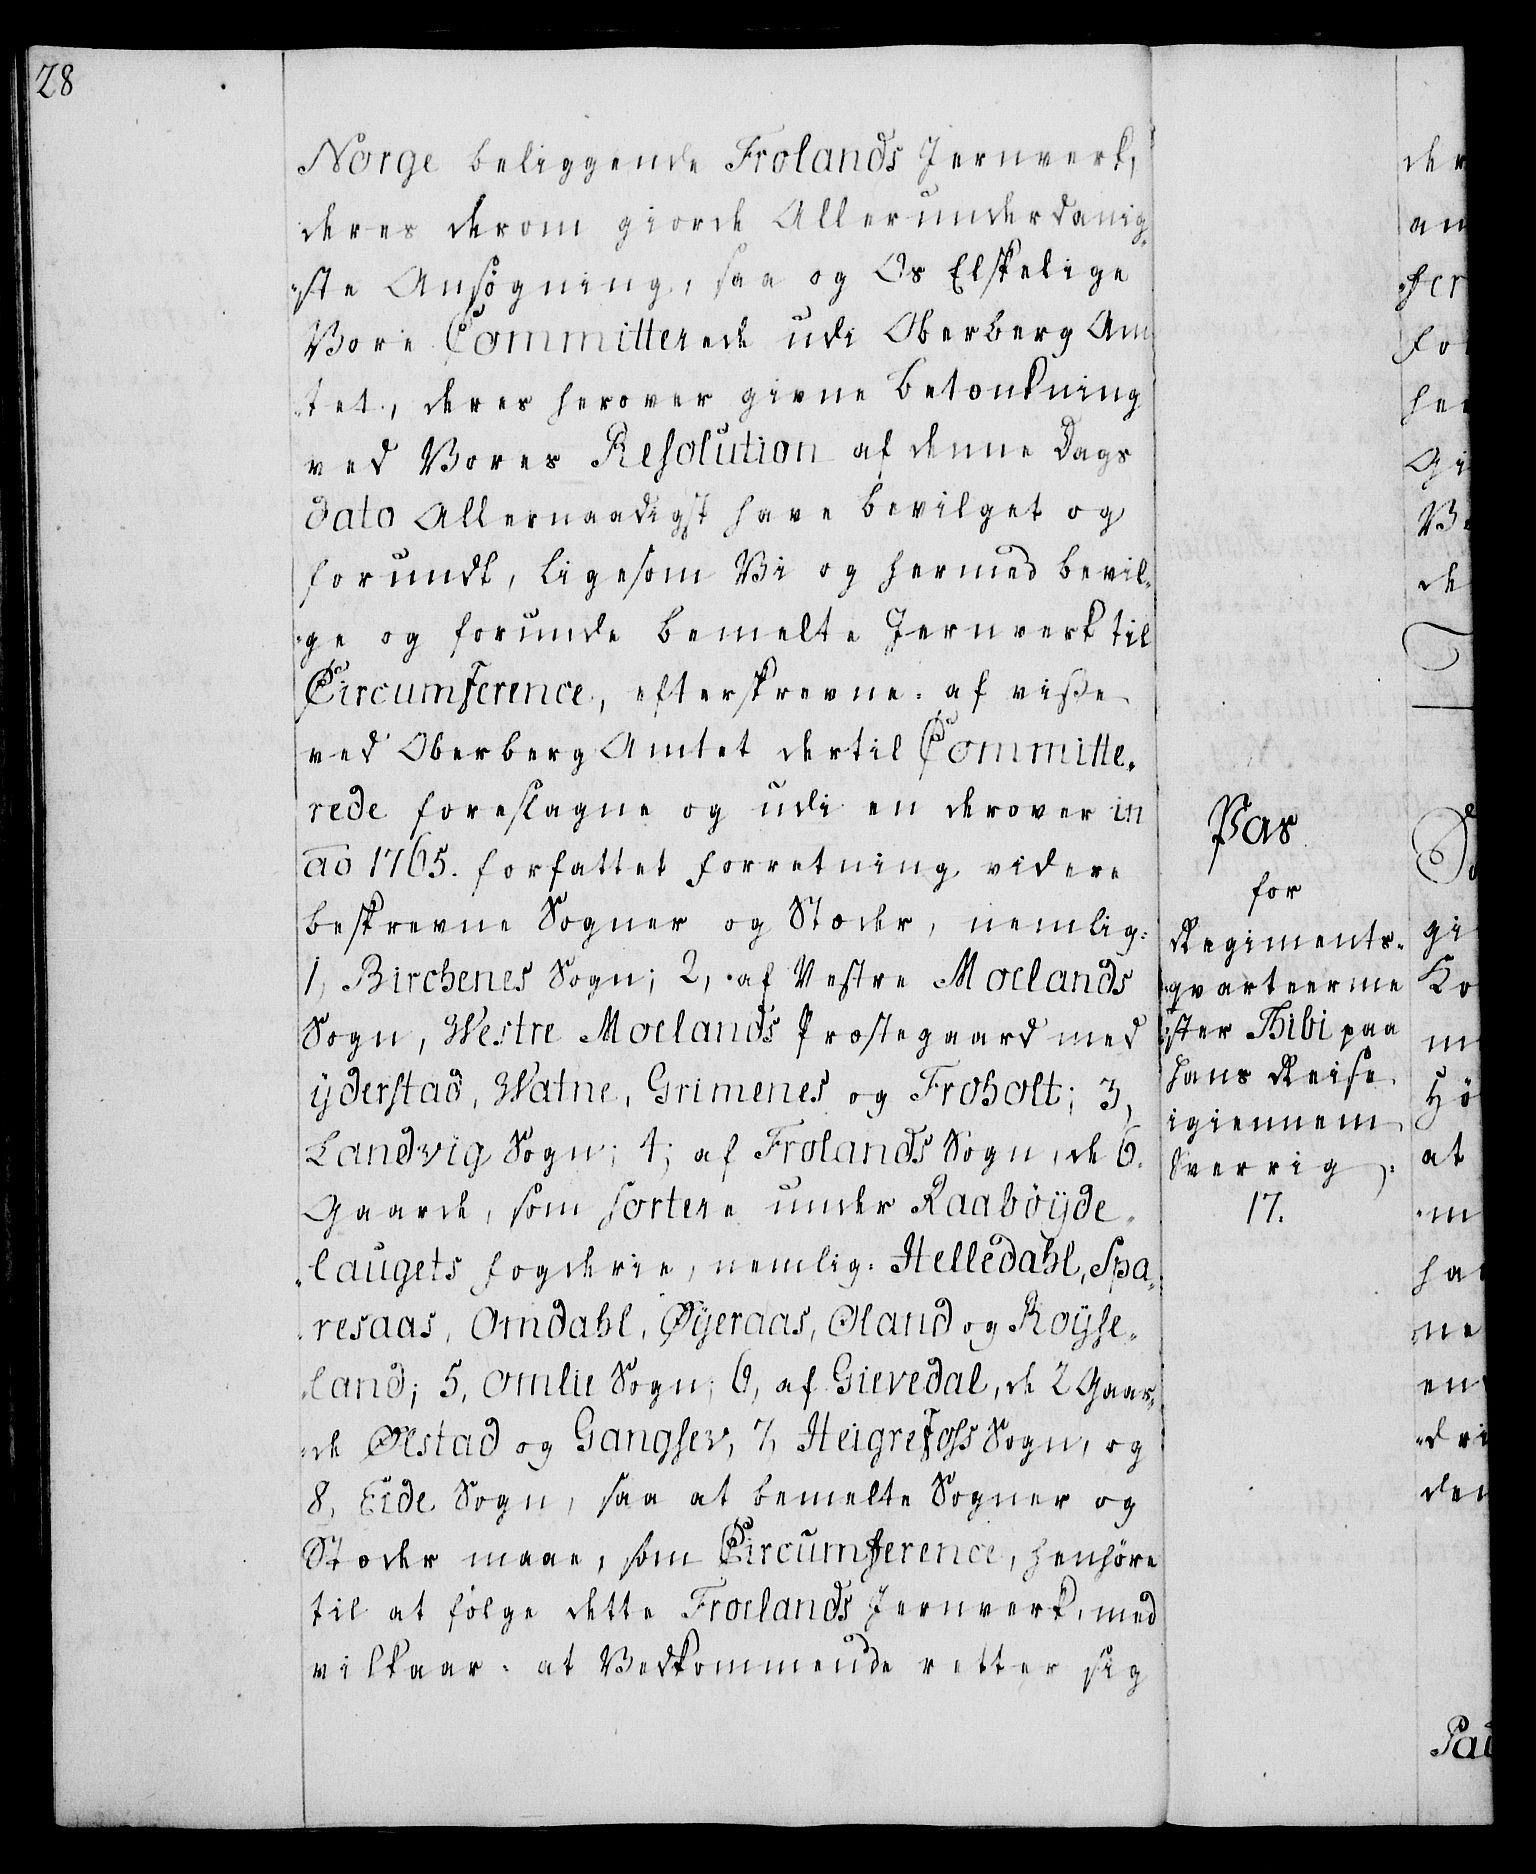 28
Norge beliggende Frolands Jernverk,
deres derom giorde Allerunderdanig-
ste Ansøgning, saa og Os Elskelige
Vore Committerede udi Oberberg Am
tet, deres herover givne Betænkning
ved Vores Resolution af denne Dags
dato Allernaadigst have bevilget og
forundt, ligesom Vi og hermed bevil-
ge og forunde bemelte Jernverk til
Circumference, efterskrevne af visse
ved Oberberg Amtet dertil Committe-
rede foreslagne og udi en derover in
ao 1765. forfattet Forretning videre
beskrevne Sogner og Stæder, nemlig:
1, Birchenes Sogn; 2, af Vestre Moelands
Sogn, Westre Moelands Præstegaard med
ÿderstad, Watne, Grimenes og Froholt; 3,
Landvig Sogn; 4, af Frolands Sogn, de 6.
Gaarde, som sortere under Raabøÿde-
laugets Fogderie, nemlig: Helledahl, Spa-
resaas, Omdahl, Øÿeraas, Øland og Roÿse-
land; 5, Omlie Sogn; 6, af Gievedal, de 2 Gaar-
de Ølstad og Gangsev, 7, Heigrefoss Sogn, og
8, Eide Sogn, saa at bemelte Sogner og
Stæder maae, som Circumference, henhøre
til at følge dette Froelands Jernverk, med
vilkaar: at Vedkommende retter sig
Pas
for
Regiments-
qvarteerme
ster Thibi paa
hans Reise
igiennem
Sverrig.
17.